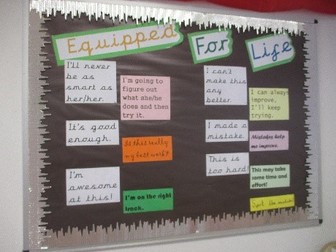 Equipped For Life
I'll never
be as
smart as
her/her.
I'm going to
figure out
what she/he
does and then
try it.
It's good
enough.
Is this really
my best work?
I'm
awesome
at this!
I'm on the right
track.
I can't
make this
any
better
I can always
improve.
I'll keep
trying.
I made a
mistake
Mistakes help
me improve.
This is
too hard!
This may take
some time and
effort!